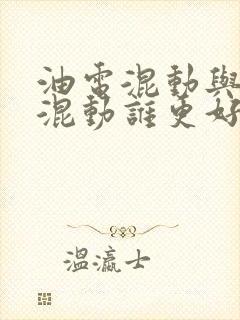 油電混動與
混動誰更好
溫瀛士